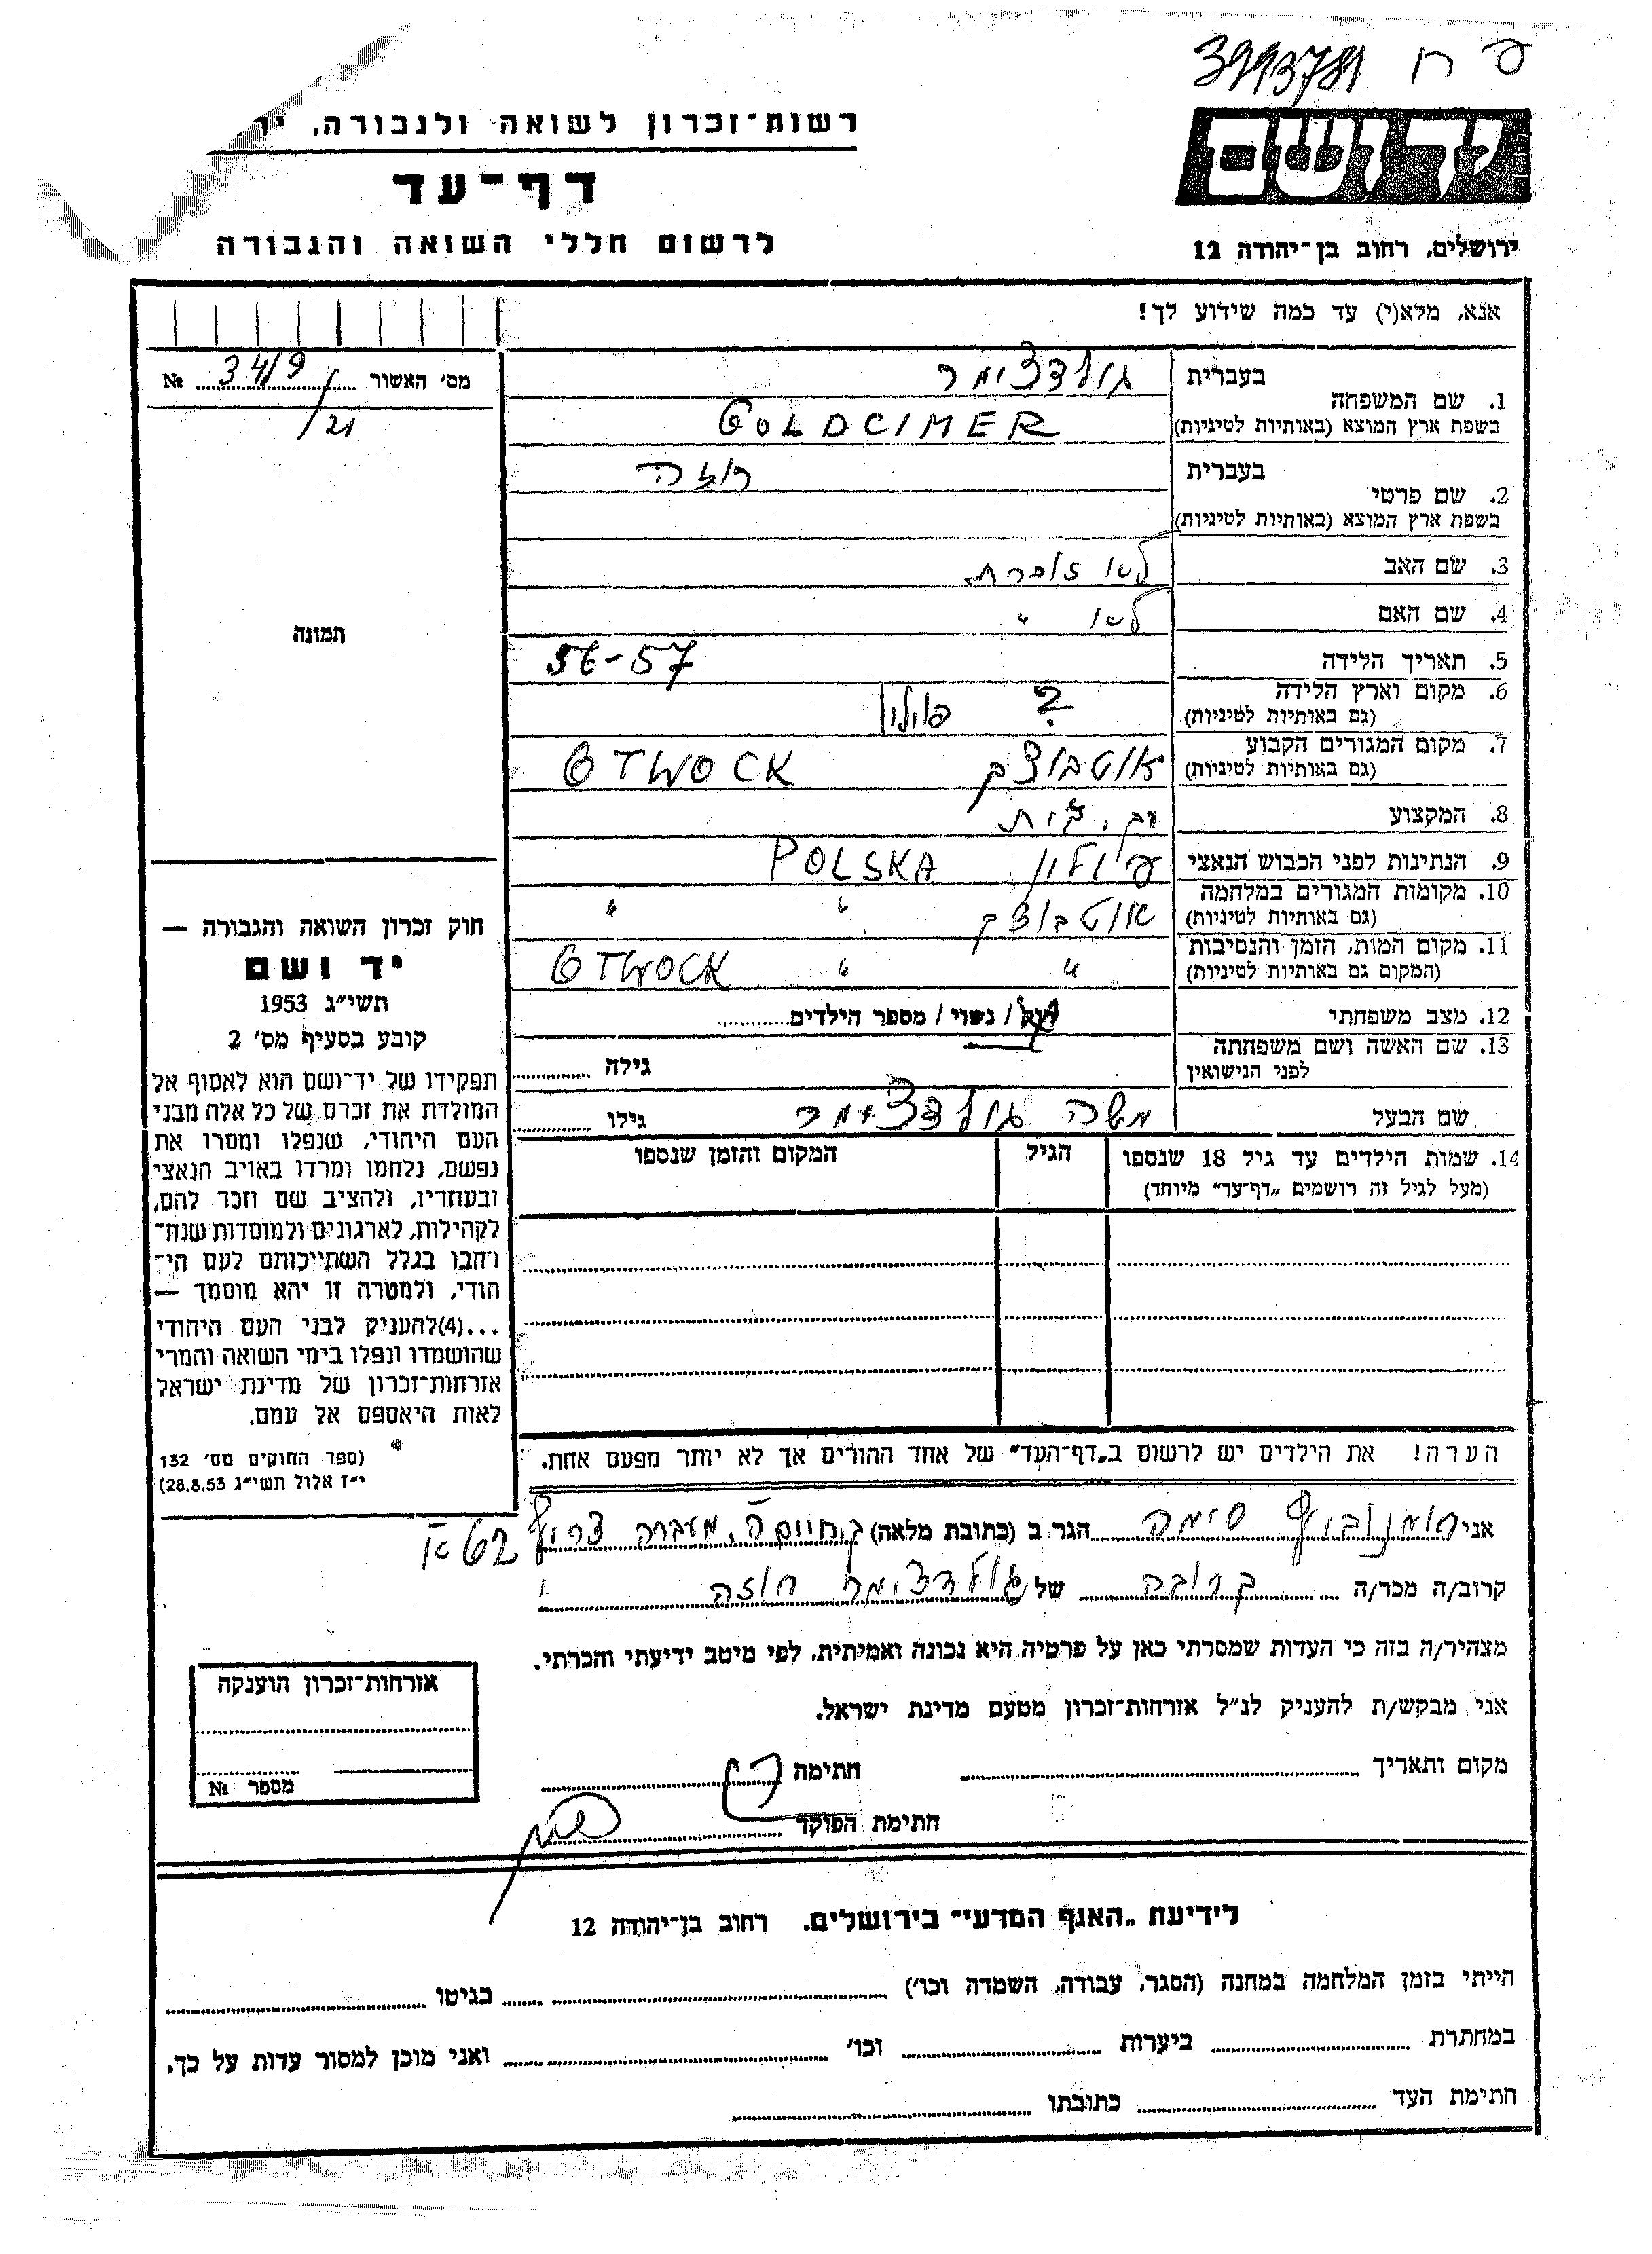 פ ח 3993781
יד ושם
ירושלים, רחוב בן־יהודה 12
רשות־זכרון לשואה ולגבורה,
דף־עד
לרשום חללי השואה והגבורה
אנא, מלא(י) עד כמה שידוע לך!
מס' האשור № 34/9
/21
תמונה
1. שם המשפחה
בעברית גולדצימר
בשפת ארץ המוצא (באותיות לטיניות) GOLDCIMER
2. שם פרטי
בעברית רוזה
בשפת ארץ המוצא (באותיות לטיניות)
3. שם האב לא זוכרת
4. שם האם לא "
5. תאריך הלידה 56-57
6. מקום וארץ הלידה ? פולין
(גם באותיות לטיניות)
7. מקום המגורים הקבוע אוטבוצק OTWOCK
(גם באותיות לטיניות)
8. המקצוע עק. בית
9. הנתינות לפני הכבוש הנאצי פולין POLSKA
10. מקומות המגורים במלחמה אוטבוצק " "
(גם באותיות לטיניות)
11. מקום המות, הזמן והנסיבות " " OTWOCK
(המקום גם באותיות לטיניות)
12. מצב משפחתי רוק / נשוי / מספר הילדים
13. שם האשה ושם משפחתה
לפני הנישואין גילה
שם הבעל משה גולדצימר גילו
14. שמות הילדים עד גיל 18 שנספו הגיל המקום והזמן שנספו
(מעל לגיל זה רושמים „דף־עד" מיוחד)
הערה! את הילדים יש לרשום ב„דף־העד" של אחד ההורים אך לא יותר מפעם אחת.
חוק זכרון השואה והגבורה —
יד ושם
תשי"ג 1953
קובע בסעיף מס' 2
תפקידו של יד־ושם הוא לאסוף אל
המולדת את זכרם של כל אלה מבני
העם היהודי, שנפלו ומסרו את
נפשם, נלחמו ומרדו באויב הנאצי
ובעוזריו, ולהציב שם וזכר להם,
לקהילות, לארגונים ולמוסדות שנח־
רחבו בגלל השתייכותם לעם הי־
הודי, ולמטרה זו יהא מוסמך —
...(4)להעניק לבני העם היהודי
שהושמדו ונפלו בימי השואה והמרי
אזרחות־זכרון של מדינת ישראל
לאות היאספם אל עמם.
(ספר החוקים מס' 132
י"ז אלול תשי"ג 28.8.53)
אני רומנוביץ סימה הגר ב (כתובת מלאה) ק. חיים, מעברה צריף 62
קרוב/ה מכר/ה קרובה של גולדצימר רוזה
מצהיר/ה בזה כי העדות שמסרתי כאן על פרטיה היא נכונה ואמיתית, לפי מיטב ידיעתי והכרתי.
אני מבקש/ת להעניק לנ"ל אזרחות־זכרון מטעם מדינת ישראל.
מקום ותאריך חתימה
חתימת הפוקד
אזרחות־זכרון הוענקה
מספר №
לידיעת „האגף המדעי" בירושלים. רחוב בן־יהודה 12
הייתי בזמן המלחמה במחנה (הסגר, עבודה, השמדה וכו') בגיטו
במחתרת ביערות וכו' ואני מוכן למסור עדות על כך.
חתימת העד כתובתו